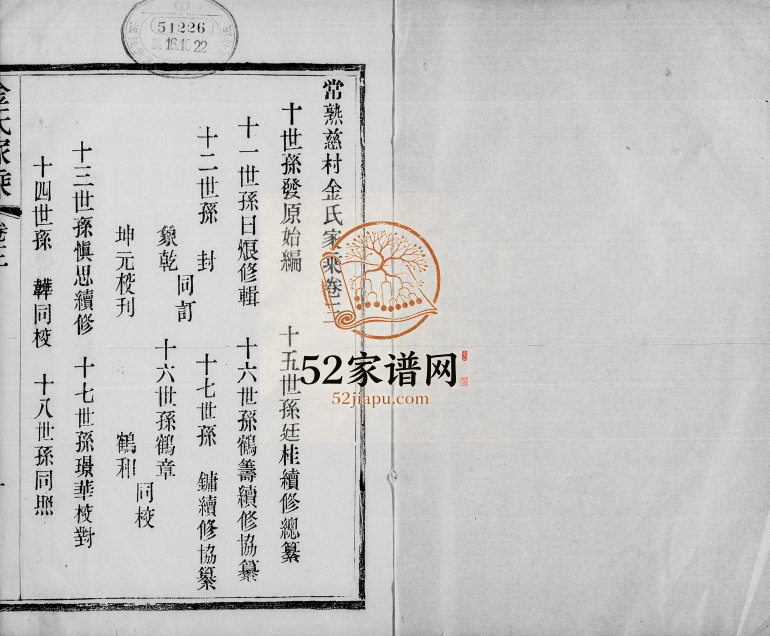 51226
16.10.22
常熟慈村金氏家乘卷三
十世孫發原始編 十五世孫廷桂續修總纂
十一世孫日煨修輯 十六世孫鶴籌續修協纂
十二世孫 封 同訂 十七世孫 鏞續修協纂
象乾 十六世孫鶴章 同校
坤元校刊 鶴和
十三世孫愼思續修 十七世孫璟華校對
十四世孫 韡同校 十八世孫同照
金氏家乘
52家谱网
52jiapu.com